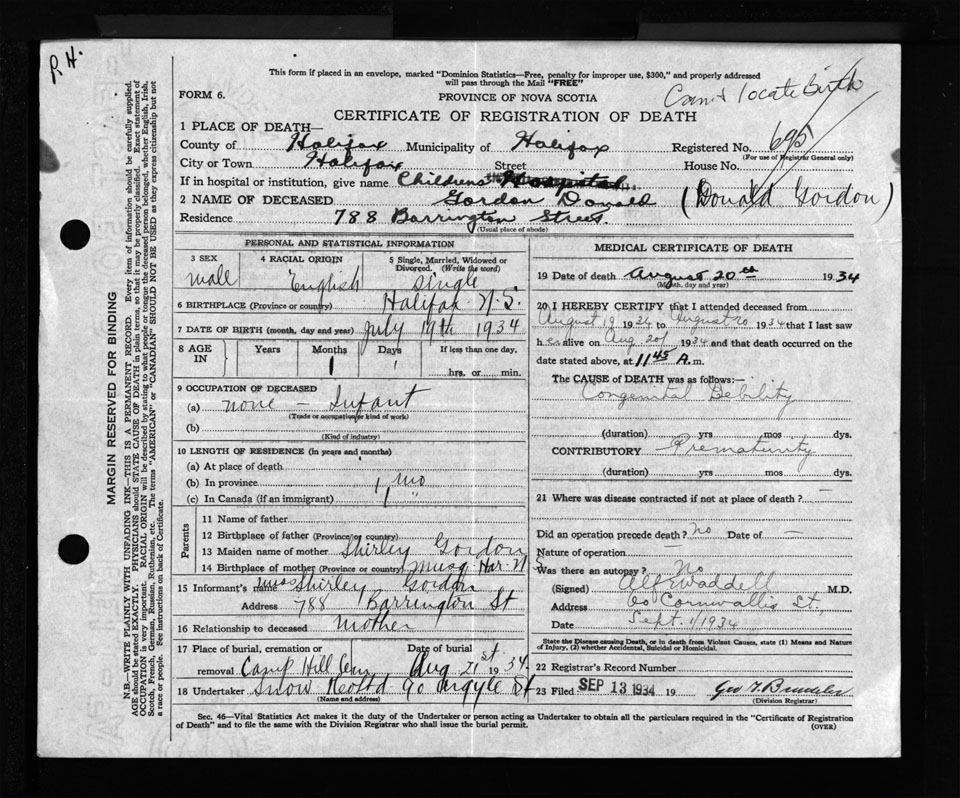 R H.
This form if placed in an envelope, marked "Dominion Statistics—Free, penalty for improper use, $300," and properly addressed
will pass through the Mail "FREE"
FORM 6.
PROVINCE OF NOVA SCOTIA
Can't locate Birth
CERTIFICATE OF REGISTRATION OF DEATH
1 PLACE OF DEATH—
County of Halifax Municipality of Halifax Registered No. 695
(For use of Registrar General only)
City or Town Halifax Street House No.
If in hospital or institution, give name Childrens Hospital
2 NAME OF DECEASED Gordon Donald (Donald Gordon)
Residence 788 Barrington Street.
(Usual place of abode)
PERSONAL AND STATISTICAL INFORMATION
3 SEX 4 RACIAL ORIGIN 5 Single, Married, Widowed or
Divorced. (Write the word)
male English single
6 BIRTHPLACE (Province or country) Halifax N.S.
7 DATE OF BIRTH (month, day and year) July 19th 1934
8 AGE IN Years Months Days If less than one day,
1 1
hrs. or min.
9 OCCUPATION OF DECEASED
(a) none — Infant
(Trade or occupation or kind of work)
(b)
(Kind of industry)
10 LENGTH OF RESIDENCE (in years and months)
(a) At place of death
(b) In province 1 mo
(c) In Canada (if an immigrant) 1 "
Parents
11 Name of father
12 Birthplace of father (Province or country)
13 Maiden name of mother Shirley Gordon
14 Birthplace of mother (Province or country) Musq. Har. N S
15 Informant's name Miss Shirley Gordon
Address 788 Barrington St
16 Relationship to deceased Mother
17 Place of burial, cremation or Date of burial
removal Camp Hill Cem Aug 21st 1934
18 Undertaker Snow 90 Argyle St
(Name and address)
MEDICAL CERTIFICATE OF DEATH
19 Date of death August 20th 1934
(Month, day and year)
20 I HEREBY CERTIFY that I attended deceased from
August 1934 to August 20 1934 that I last saw
h alive on Aug 20 1934 and that death occurred on the
date stated above, at 11 45 A.m.
The CAUSE of DEATH was as follows:—
Congenital Debility
(duration) yrs mos dys.
CONTRIBUTORY Prematurity
(duration) yrs mos dys.
21 Where was disease contracted if not at place of death? —
Did an operation precede death? No Date of —
Nature of operation —
Was there an autopsy? No
(Signed) Alf Waddell M.D.
Address 60 Cornwallis St.,
Date Sept. 1/1934
State the Disease causing Death, or in death from Violent Causes, state (1) Means and Nature
of Injury, (2) whether Accidental, Suicidal or Homicidal.
22 Registrar's Record Number
23 Filed SEP 13 1934 19
(Division Registrar)
Sec. 46—Vital Statistics Act makes it the duty of the Undertaker or person acting as Undertaker to obtain all the particulars required in the "Certificate of Registration
of Death" and to file the same with the Division Registrar who shall issue the burial permit.
(OVER)
MARGIN RESERVED FOR BINDING
N.B.—WRITE PLAINLY WITH UNFADING INK—THIS IS A PERMANENT RECORD. Every item of information should be carefully supplied.
AGE should be stated EXACTLY. PHYSICIANS should STATE CAUSE OF DEATH in plain terms, so that it may be properly classified. Exact statement of
OCCUPATION is very important. RACIAL ORIGIN will be described by stating to what people or tongue the deceased person belonged, whether English, Irish,
Scotch, French, German, Russian, Ruthenian, etc. The terms "AMERICAN" or "CANADIAN" SHOULD NOT BE USED as they express citizenship but not
a race or people. See instructions on back of Certificate.